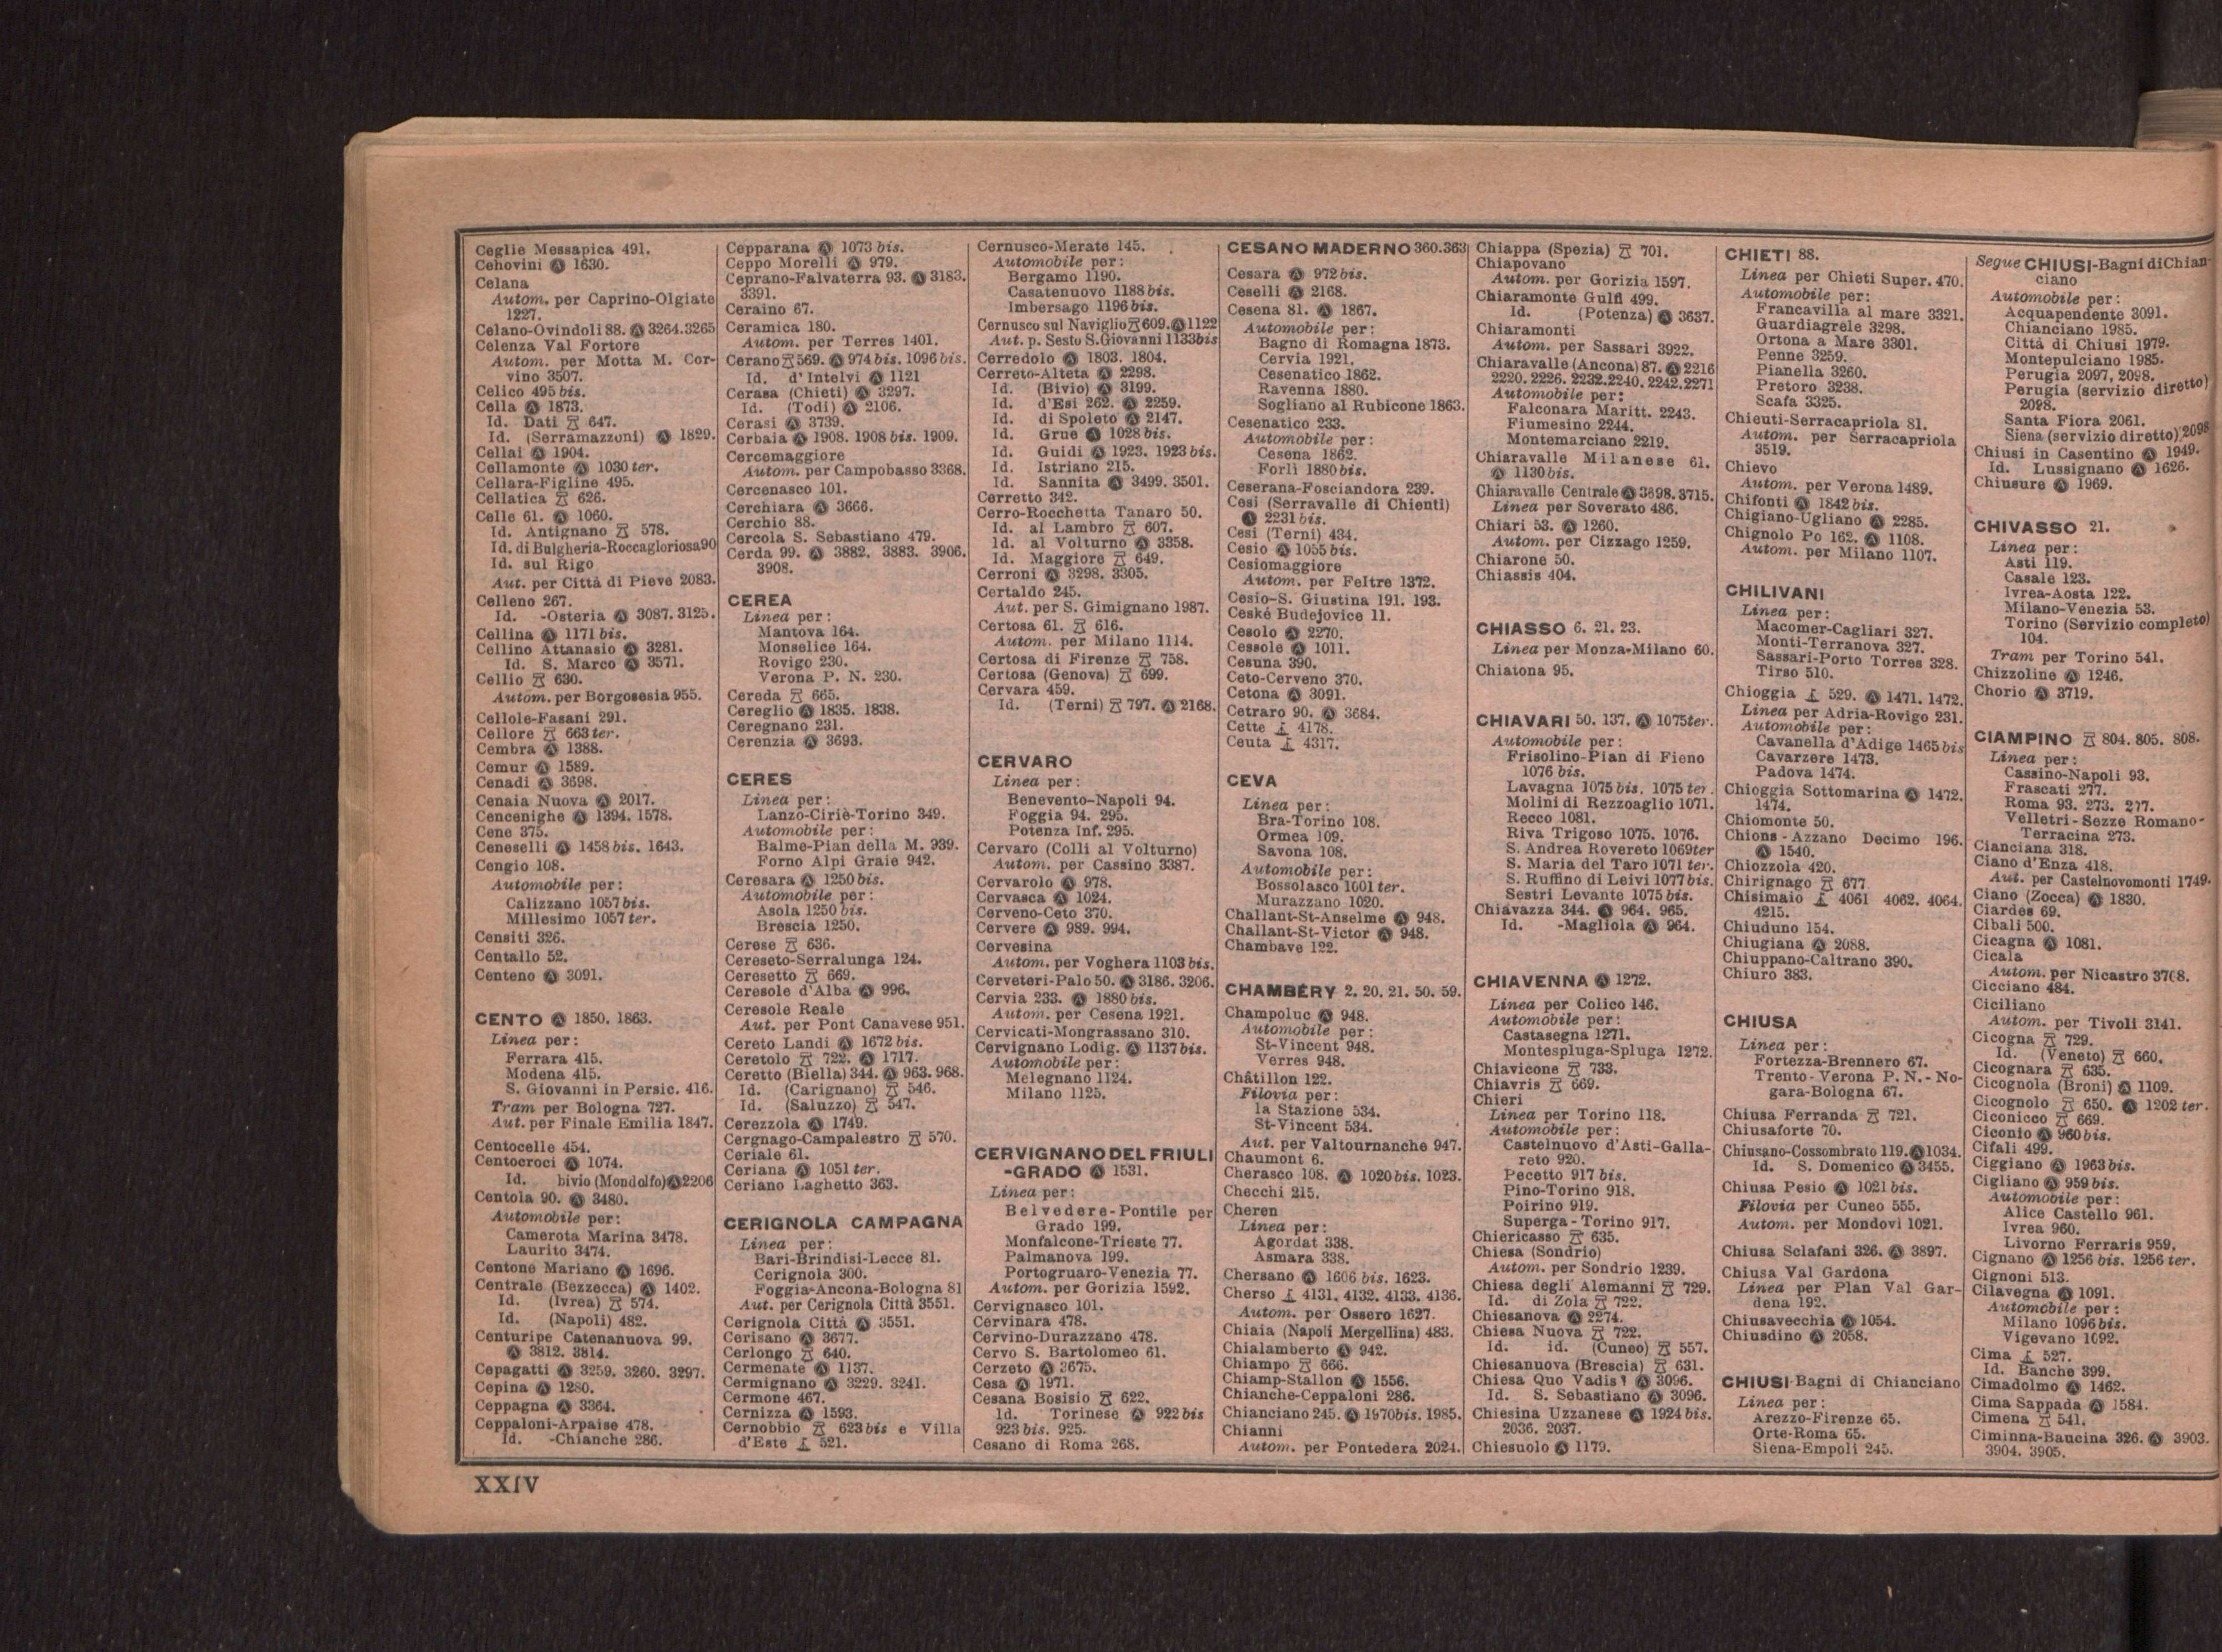 Ceglie Messapica 491.
Cehovini Ⓐ 1630.
Celana
Autom. per Caprino-Olgiate
1227.
Celano-Ovindoli 88. Ⓐ 3264.3265
Celenza Val Fortore
Autom. per Motta M. Cor-
vino 3507.
Celico 495 bis.
Cella Ⓐ 1873.
Id. Dati 647.
Id. (Serramazzoni) Ⓐ 1829.
Cellai Ⓐ 1904.
Cellamonte Ⓐ 1030 ter.
Cellara-Figline 495.
Cellatica 626.
Celle 61. Ⓐ 1060.
Id. Antignano 578.
Id. di Bulgheria-Roccagloriosa 90
Id. sul Rigo
Aut. per Città di Pieve 2083.
Celleno 267.
Id. -Osteria Ⓐ 3087. 3125.
Cellina Ⓐ 1171 bis.
Cellino Attanasio Ⓐ 3281.
Id. S. Marco Ⓐ 3571.
Cellio 630.
Autom. per Borgosesia 955.
Cellole-Fasani 291.
Cellore 663 ter.
Cembra Ⓐ 1388.
Cemur Ⓐ 1589.
Cenadi Ⓐ 3698.
Cenaia Nuova Ⓐ 2017.
Cencenighe Ⓐ 1394. 1578.
Cene 375.
Ceneselli Ⓐ 1458 bis. 1643.
Cengio 108.
Automobile per:
Calizzano 1057 bis.
Millesimo 1057 ter.
Censiti 326.
Centallo 52.
Centeno Ⓐ 3091.
CENTO Ⓐ 1850. 1863.
Linea per:
Ferrara 415.
Modena 415.
S. Giovanni in Persic. 416.
Tram per Bologna 727.
Aut. per Finale Emilia 1847.
Centocelle 454.
Centocroci Ⓐ 1074.
Id. bivio (Mondolfo) Ⓐ 2206
Centola 90. Ⓐ 3480.
Automobile per:
Camerota Marina 3478.
Laurito 3474.
Centone Mariano Ⓐ 1696.
Centrale (Bezzecca) Ⓐ 1402.
Id. (Ivrea) 574.
Id. (Napoli) 482.
Centuripe Catenanuova 99.
Ⓐ 3812. 3814.
Cepagatti Ⓐ 3259. 3260. 3297.
Cepina Ⓐ 1280.
Ceppagna Ⓐ 3364.
Ceppaloni-Arpaise 478.
Id. -Chianche 286.
Cepparana Ⓐ 1073 bis.
Ceppo Morelli Ⓐ 979.
Ceprano-Falvaterra 93. Ⓐ 3183.
3391.
Ceraino 67.
Ceramica 180.
Autom. per Terres 1401.
Cerano 569. Ⓐ 974 bis. 1096 bis.
Id. d'Intelvi Ⓐ 1121
Cerasa (Chieti) Ⓐ 3297.
Id. (Todi) Ⓐ 2106.
Cerasi Ⓐ 3739.
Cerbaia Ⓐ 1908. 1908 bis. 1909.
Cercemaggiore
Autom. per Campobasso 3368.
Cercenasco 101.
Cerchiara Ⓐ 3666.
Cerchio 88.
Cercola S. Sebastiano 479.
Cerda 99. Ⓐ 3882. 3883. 3906.
3908.
CEREA
Linea per:
Mantova 164.
Monselice 164.
Rovigo 230.
Verona P. N. 230.
Cereda 665.
Cereglio Ⓐ 1835. 1838.
Ceregnano 231.
Cerenzia Ⓐ 3693.
CERES
Linea per:
Lanzo-Ciriè-Torino 349.
Automobile per:
Balme-Pian della M. 939.
Forno Alpi Graie 942.
Ceresara Ⓐ 1250 bis.
Automobile per:
Asola 1250 bis.
Brescia 1250.
Cerese 636.
Cereseto-Serralunga 124.
Ceresetto 669.
Ceresole d'Alba Ⓐ 996.
Ceresole Reale
Aut. per Pont Canavese 951.
Cereto Landi Ⓐ 1672 bis.
Ceretolo 722. Ⓐ 1717.
Ceretto (Biella) 344. Ⓐ 963. 968.
Id. (Carignano) 546.
Id. (Saluzzo) 547.
Cerezzola Ⓐ 1749.
Cergnago-Campalestro 570.
Ceriale 61.
Ceriana Ⓐ 1051 ter.
Ceriano Laghetto 363.
CERIGNOLA CAMPAGNA
Linea per:
Bari-Brindisi-Lecce 81.
Cerignola 300.
Foggia-Ancona-Bologna 81
Aut. per Cerignola Città 3551.
Cerignola Città Ⓐ 3551.
Cerisano Ⓐ 3677.
Cerlongo 640.
Cermenate Ⓐ 1137.
Cermignano Ⓐ 3229. 3241.
Cermone 467.
Cernizza Ⓐ 1593.
Cernobbio 623 bis e Villa
d'Este 521.
Cernusco-Merate 145.
Automobile per:
Bergamo 1190.
Casatenuovo 1188 bis.
Imbersago 1196 bis.
Cernusco sul Naviglio 609. Ⓐ 1122
Aut. p. Sesto S. Giovanni 1133 bis
Cerredolo Ⓐ 1803. 1804.
Cerreto-Alteta Ⓐ 2298.
Id. (Bivio) Ⓐ 3199.
Id. d'Esi 262. Ⓐ 2259.
Id. di Spoleto Ⓐ 2147.
Id. Grue Ⓐ 1028 bis.
Id. Guidi Ⓐ 1923. 1923 bis.
Id. Istriano 215.
Id. Sannita Ⓐ 3499. 3501.
Cerretto 342.
Cerro-Rocchetta Tanaro 50.
Id. al Lambro 607.
Id. al Volturno Ⓐ 3358.
Id. Maggiore 649.
Cerroni Ⓐ 3298. 3305.
Certaldo 245.
Aut. per S. Gimignano 1987.
Certosa 61. 616.
Autom. per Milano 1114.
Certosa di Firenze 758.
Certosa (Genova) 699.
Cervara 459.
Id. (Terni) 797. Ⓐ 2168.
CERVARO
Linea per:
Benevento-Napoli 94.
Foggia 94. 295.
Potenza Inf. 295.
Cervaro (Colli al Volturno)
Autom. per Cassino 3387.
Cervarolo Ⓐ 978.
Cervasca Ⓐ 1024.
Cerveno-Ceto 370.
Cervere Ⓐ 989. 994.
Cervesina
Autom. per Voghera 1103 bis.
Cerveteri-Palo 50. Ⓐ 3186. 3206.
Cervia 233. Ⓐ 1880 bis.
Autom. per Cesena 1921.
Cervicati-Mongrassano 310.
Cervignano Lodig. Ⓐ 1137 bis.
Automobile per:
Melegnano 1124.
Milano 1125.
CERVIGNANO DEL FRIULI
-GRADO Ⓐ 1531.
Linea per:
Belvedere-Pontile per
Grado 199.
Monfalcone-Trieste 77.
Palmanova 199.
Portogruaro-Venezia 77.
Autom. per Gorizia 1592.
Cervignasco 101.
Cervinara 478.
Cervino-Durazzano 478.
Cervo S. Bartolomeo 61.
Cerzeto Ⓐ 3675.
Cesa Ⓐ 1971.
Cesana Bosisio 622.
Id. Torinese Ⓐ 922 bis
923 bis. 925.
Cesano di Roma 268.
CESANO MADERNO 360.363
Cesara Ⓐ 972 bis.
Ceselli Ⓐ 2168.
Cesena 81. Ⓐ 1867.
Automobile per:
Bagno di Romagna 1873.
Cervia 1921.
Cesenatico 1862.
Ravenna 1880.
Sogliano al Rubicone 1863.
Cesenatico 233.
Automobile per:
Cesena 1862.
Forlì 1880 bis.
Ceserana-Fosciandora 239.
Cesi (Serravalle di Chienti)
Ⓐ 2231 bis.
Cesi (Terni) 434.
Cesio Ⓐ 1055 bis.
Cesiomaggiore
Autom. per Feltre 1372.
Cesio-S. Giustina 191. 193.
Ceské Budejovice 11.
Cesolo Ⓐ 2270.
Cessole Ⓐ 1011.
Cesuna 390.
Ceto-Cerveno 370.
Cetona Ⓐ 3091.
Cetraro 90. Ⓐ 3684.
Cette 4178.
Ceuta 4317.
CEVA
Linea per:
Bra-Torino 108.
Ormea 109.
Savona 108.
Automobile per:
Bossolasco 1001 ter.
Murazzano 1020.
Challant-St-Anselme Ⓐ 948.
Challant-St-Victor Ⓐ 948.
Chambave 122.
CHAMBÉRY 2. 20. 21. 50. 59.
Champoluc Ⓐ 948.
Automobile per:
St-Vincent 948.
Verres 948.
Châtillon 122.
Filovia per:
la Stazione 534.
St-Vincent 534.
Aut. per Valtournanche 947.
Chaumont 6.
Cherasco 108. Ⓐ 1020 bis. 1023.
Checchi 215.
Cheren
Linea per:
Agordat 338.
Asmara 338.
Chersano Ⓐ 1606 bis. 1623.
Cherso 4131. 4132. 4133. 4136.
Autom. per Ossero 1627.
Chiaia (Napoli Mergellina) 483.
Chialamberto Ⓐ 942.
Chiampo 666.
Chiamp-Stallon Ⓐ 1556.
Chianche-Ceppaloni 286.
Chianciano 245. Ⓐ 1970 bis. 1985.
Chianni
Autom. per Pontedera 2024.
Chiappa (Spezia) 701.
Chiapovano
Autom. per Gorizia 1597.
Chiaramonte Gulfi 499.
Id. (Potenza) Ⓐ 3637.
Chiaramonti
Autom. per Sassari 3922.
Chiaravalle (Ancona) 87. Ⓐ 2216
2220. 2226. 2232. 2240. 2242. 2271
Automobile per:
Falconara Maritt. 2243.
Fiumesino 2244.
Montemarciano 2219.
Chiaravalle Milanese 61.
Ⓐ 1130 bis.
Chiaravalle Centrale Ⓐ 3698. 3715.
Linea per Soverato 486.
Chiari 53. Ⓐ 1260.
Autom. per Cizzago 1259.
Chiarone 50.
Chiassis 404.
CHIASSO 6. 21. 23.
Linea per Monza-Milano 60.
Chiatona 95.
CHIAVARI 50. 137. Ⓐ 1075 ter.
Automobile per:
Frisolino-Pian di Fieno
1076 bis.
Lavagna 1075 bis. 1075 ter.
Molini di Rezzoaglio 1071.
Recco 1081.
Riva Trigoso 1075. 1076.
S. Andrea Rovereto 1069 ter
S. Maria del Taro 1071 ter.
S. Ruffino di Leivi 1077 bis.
Sestri Levante 1075 bis.
Chiavazza 344. Ⓐ 964. 965.
Id. -Magliola Ⓐ 964.
CHIAVENNA Ⓐ 1272.
Linea per Colico 146.
Automobile per:
Castasegna 1271.
Montespluga-Spluga 1272.
Chiavicone 733.
Chiavris 669.
Chieri
Linea per Torino 118.
Automobile per:
Castelnuovo d'Asti-Galla-
reto 920.
Pecetto 917 bis.
Pino-Torino 918.
Poirino 919.
Superga-Torino 917.
Chiericasso 635.
Chiesa (Sondrio)
Autom. per Sondrio 1239.
Chiesa degli Alemanni 729.
Id. di Zola 722.
Chiesanova Ⓐ 2274.
Chiesa Nuova 722.
Id. id. (Cuneo) 557.
Chiesanuova (Brescia) 631.
Chiesa Quo Vadis? Ⓐ 3096.
Id. S. Sebastiano Ⓐ 3096.
Chiesina Uzzanese Ⓐ 1924 bis.
2036. 2037.
Chiesuolo Ⓐ 1179.
CHIETI 88.
Linea per Chieti Super. 470.
Automobile per:
Francavilla al mare 3321.
Guardiagrele 3298.
Ortona a Mare 3301.
Penne 3259.
Pianella 3260.
Pretoro 3238.
Scafa 3325.
Chieuti-Serracapriola 81.
Autom. per Serracapriola
3519.
Chievo
Autom. per Verona 1489.
Chifonti Ⓐ 1842 bis.
Chigiano-Ugliano Ⓐ 2285.
Chignolo Po 162. Ⓐ 1108.
Autom. per Milano 1107.
CHILIVANI
Linea per:
Macomer-Cagliari 327.
Monti-Terranova 327.
Sassari-Porto Torres 328.
Tirso 510.
Chioggia 529. Ⓐ 1471. 1472.
Linea per Adria-Rovigo 231.
Automobile per:
Cavanella d'Adige 1465 bis
Cavarzere 1473.
Padova 1474.
Chioggia Sottomarina Ⓐ 1472.
1474.
Chiomonte 50.
Chions-Azzano Decimo 196.
Ⓐ 1540.
Chiozzola 420.
Chirignago 677
Chisimaio 4061 4062. 4064.
4215.
Chiuduno 154.
Chiugiana Ⓐ 2088.
Chiuppano-Caltrano 390.
Chiuro 383.
CHIUSA
Linea per:
Fortezza-Brennero 67.
Trento-Verona P. N.-No-
gara-Bologna 67.
Chiusa Ferranda 721.
Chiusaforte 70.
Chiusano-Cossombrato 119. Ⓐ 1034.
Id. S. Domenico Ⓐ 3455.
Chiusa Pesio Ⓐ 1021 bis.
Filovia per Cuneo 555.
Autom. per Mondovì 1021.
Chiusa Sclafani 326. Ⓐ 3897.
Chiusa Val Gardena
Linea per Plan Val Gar-
dena 192.
Chiusavecchia Ⓐ 1054.
Chiusdino Ⓐ 2058.
CHIUSI-Bagni di Chianciano
Linea per:
Arezzo-Firenze 65.
Orte-Roma 65.
Siena-Empoli 245.
Segue CHIUSI-Bagni di Chian-
ciano
Automobile per:
Acquapendente 3091.
Chianciano 1985.
Città di Chiusi 1979.
Montepulciano 1985.
Perugia 2097, 2098.
Perugia (servizio diretto)
2098.
Santa Fiora 2061.
Siena (servizio diretto) 2098
Chiusi in Casentino Ⓐ 1949.
Id. Lussignano Ⓐ 1626.
Chiusure Ⓐ 1969.
CHIVASSO 21.
Linea per:
Asti 119.
Casale 123.
Ivrea-Aosta 122.
Milano-Venezia 53.
Torino (Servizio completo)
104.
Tram per Torino 541.
Chizzoline Ⓐ 1246.
Chorio Ⓐ 3719.
CIAMPINO 804. 805. 808.
Linea per:
Cassino-Napoli 93.
Frascati 277.
Roma 93. 273. 277.
Velletri-Sezze Romano-
Terracina 273.
Cianciana 318.
Ciano d'Enza 418.
Aut. per Castelnovomonti 1749.
Ciano (Zocca) Ⓐ 1830.
Ciardes 69.
Cibali 500.
Cicagna Ⓐ 1081.
Cicala
Autom. per Nicastro 3708.
Cicciano 484.
Ciciliano
Autom. per Tivoli 3141.
Cicogna 729.
Id. (Veneto) 660.
Cicognara 635.
Cicognola (Broni) Ⓐ 1109.
Cicognolo 650. Ⓐ 1202 ter.
Ciconicco 669.
Ciconio Ⓐ 960 bis.
Cifali 499.
Ciggiano Ⓐ 1963 bis.
Cigliano Ⓐ 959 bis.
Automobile per:
Alice Castello 961.
Ivrea 960.
Livorno Ferraris 959.
Cignano Ⓐ 1256 bis. 1256 ter.
Cignoni 513.
Cilavegna Ⓐ 1091.
Automobile per:
Milano 1096 bis.
Vigevano 1092.
Cima 527.
Id. Banche 399.
Cimadolmo Ⓐ 1462.
Cima Sappada Ⓐ 1584.
Cimena 541.
Ciminna-Baucina 326. Ⓐ 3903.
3904. 3905.
XXIV